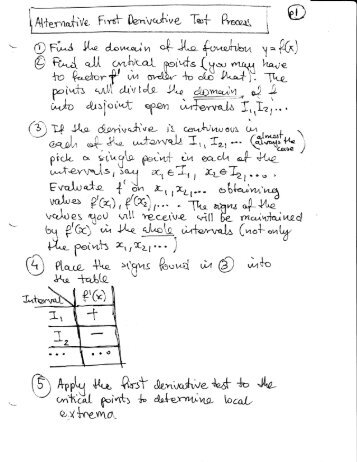 Alternative First Derivative Test Process
p1
① Find the domain of the function y=f(x)
② Find all critical points (you may have
to factor f' in order to do that). The
points will divide the domain of f
into disjoint open intervals I₁, I₂, ...
③ If the derivative is continuous in
each of the intervals I₁, I₂, ... (almost always the case)
pick a single point in each of the
intervals, say x₁∈I₁, x₂∈I₂, ... .
Evaluate f' on x₁, x₂, ... obtaining
values f'(x₁), f'(x₂), ... . The signs of the
values you will receive will be maintained
by f'(x) in the whole intervals (not only
the points x₁, x₂, ...)
④ Place the signs found in ③ into
the table
Interval | f'(x)
I₁ | +
I₂ | −
... | ...
⑤ Apply the first derivative test to the
critical points to determine local
extrema